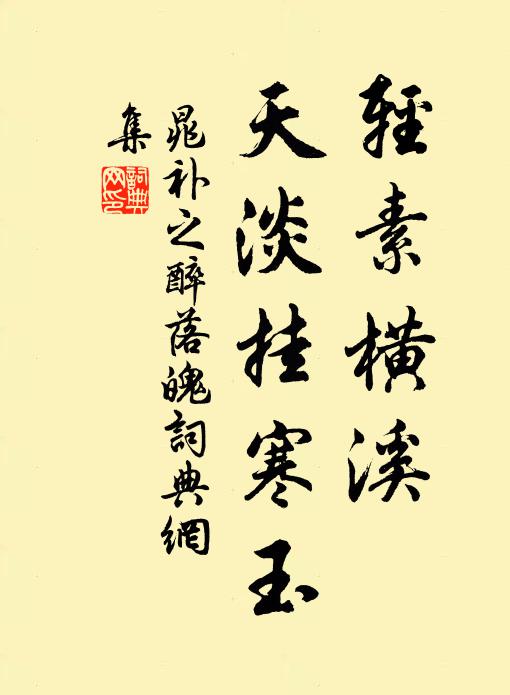 輕素橫溪
天淡挂寒玉
晁补之醉落魄詞典網
集
詞典網印